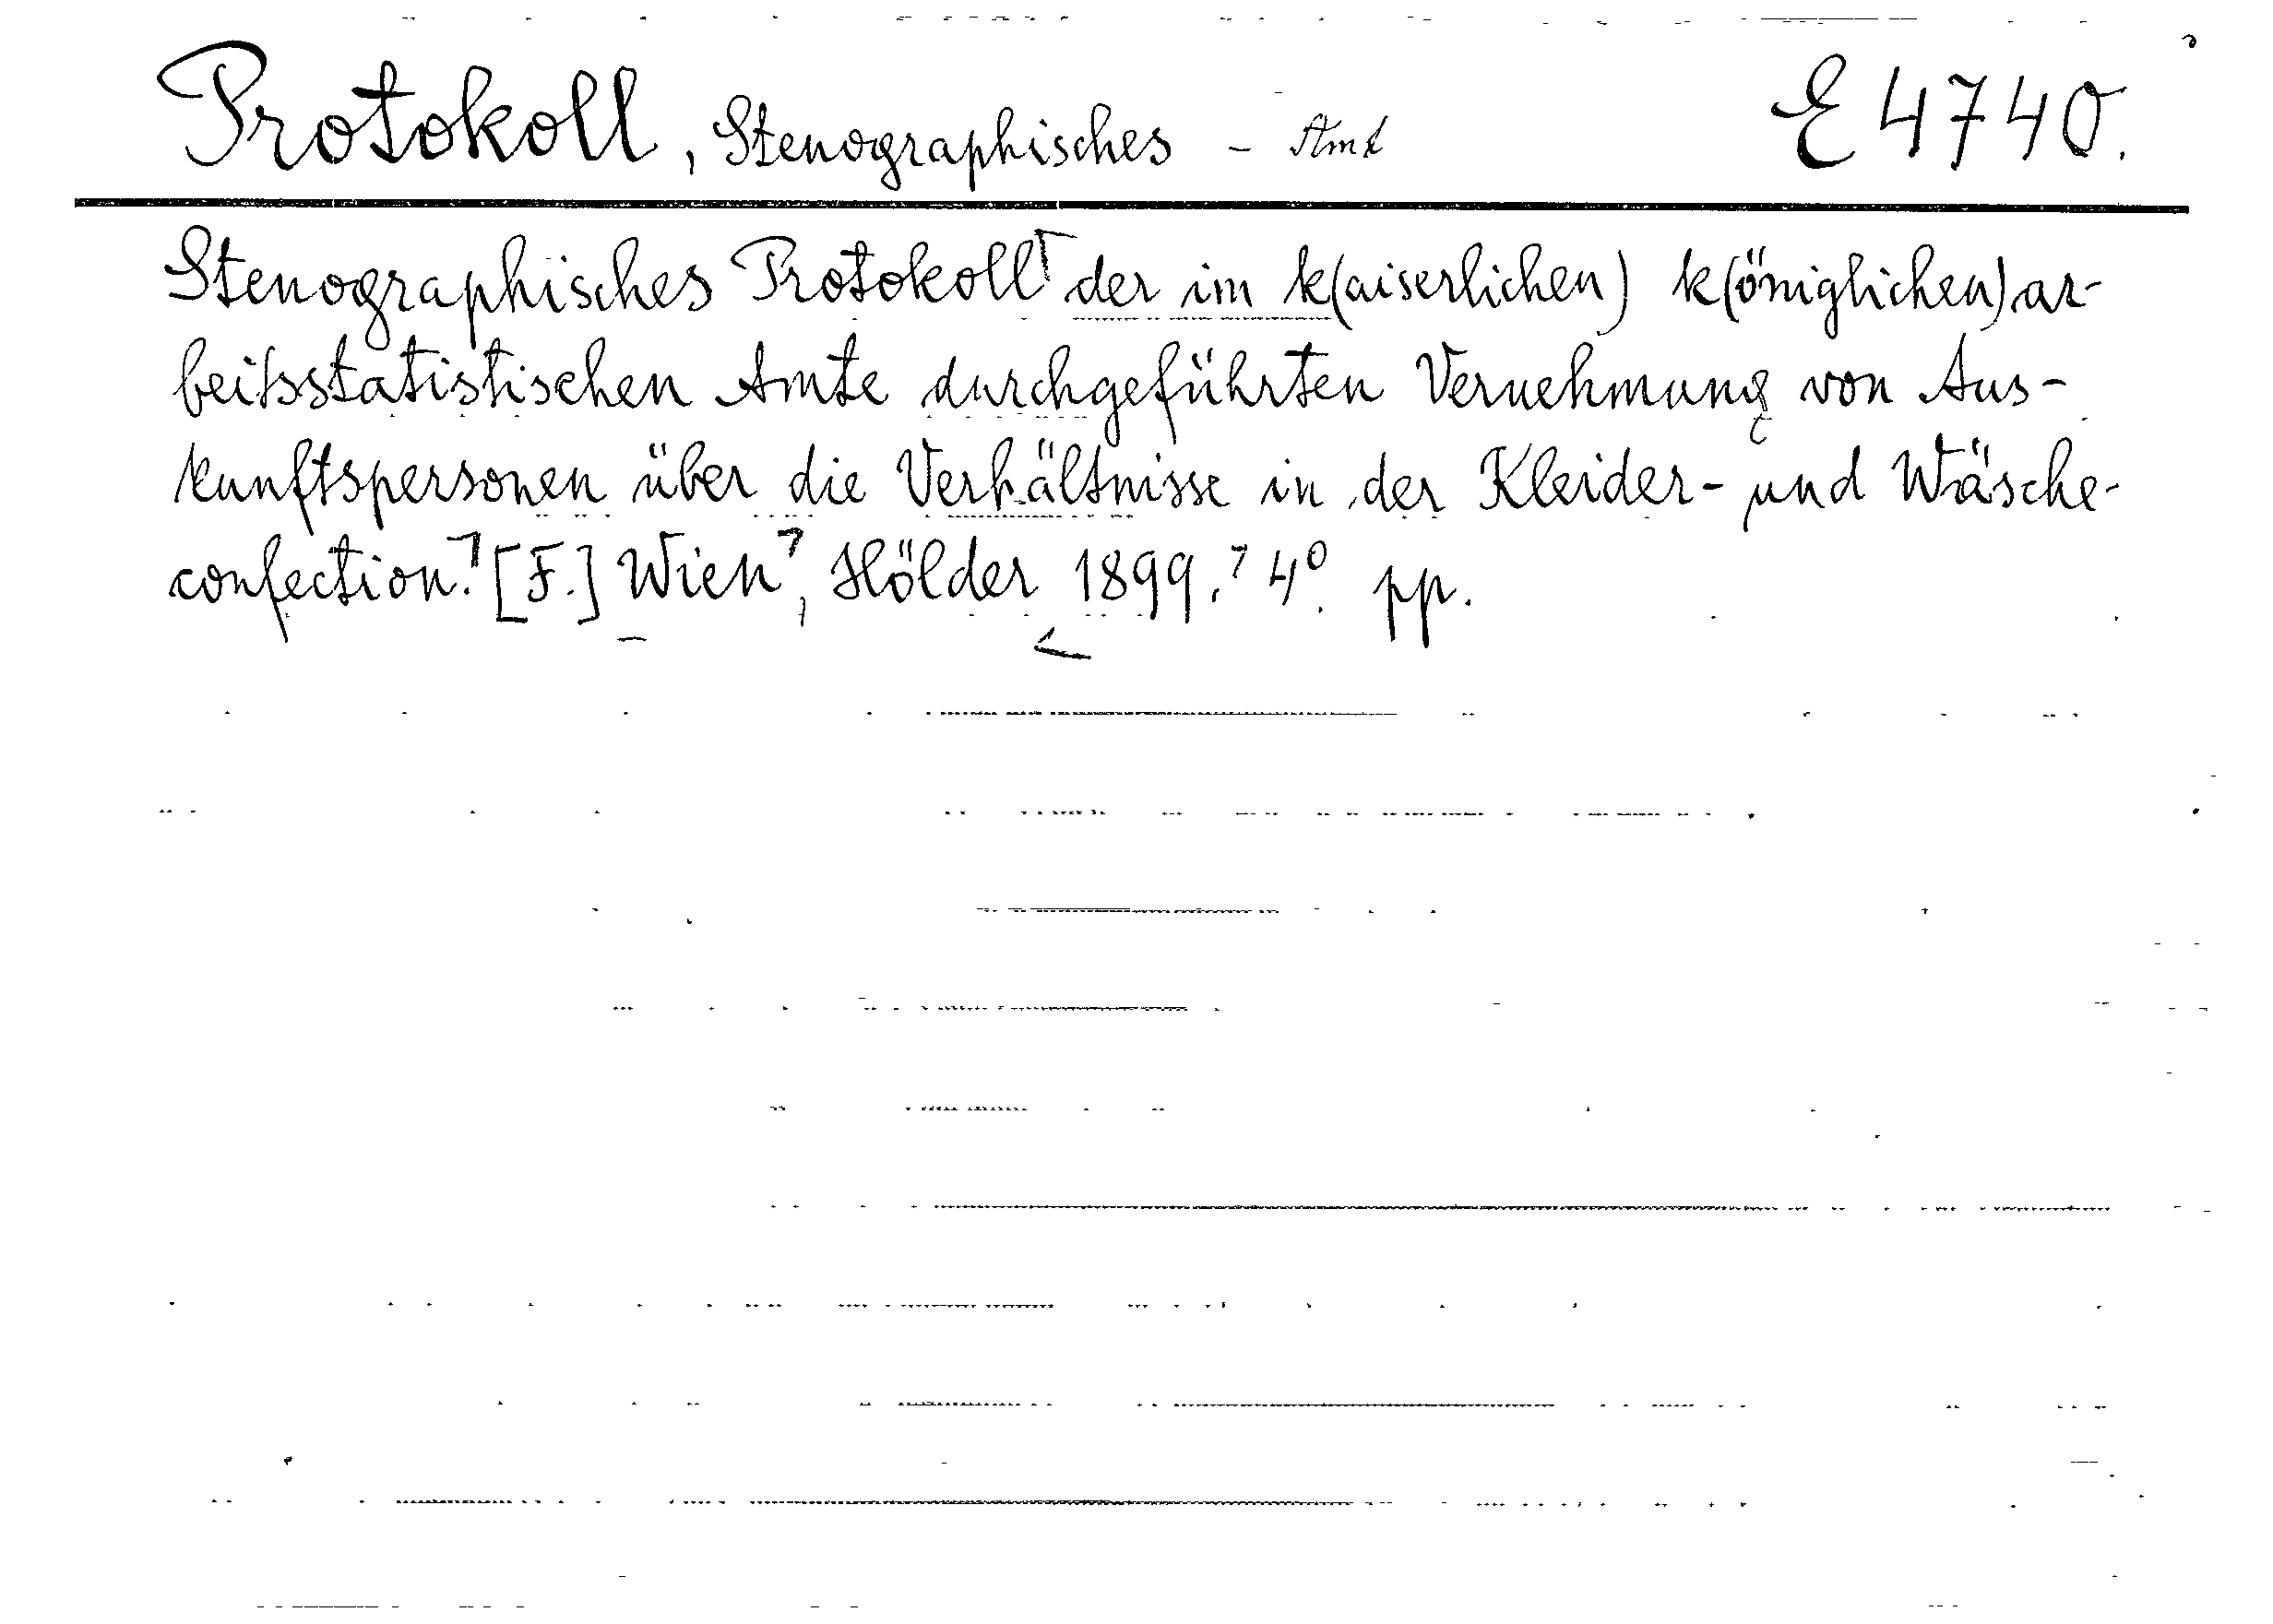 Protokoll, Stenographisches - Amt E 4740.
Stenographisches Protokoll der im k(aiserlichen) k(öniglichen) ar-
beitsstatistischen Amte durchgeführten Vernehmung von Aus-
kunftspersonen über die Verhältnisse in der Kleider- und Wäsche-
confection. [F.] Wien, Hölder 1899. 4° pp.